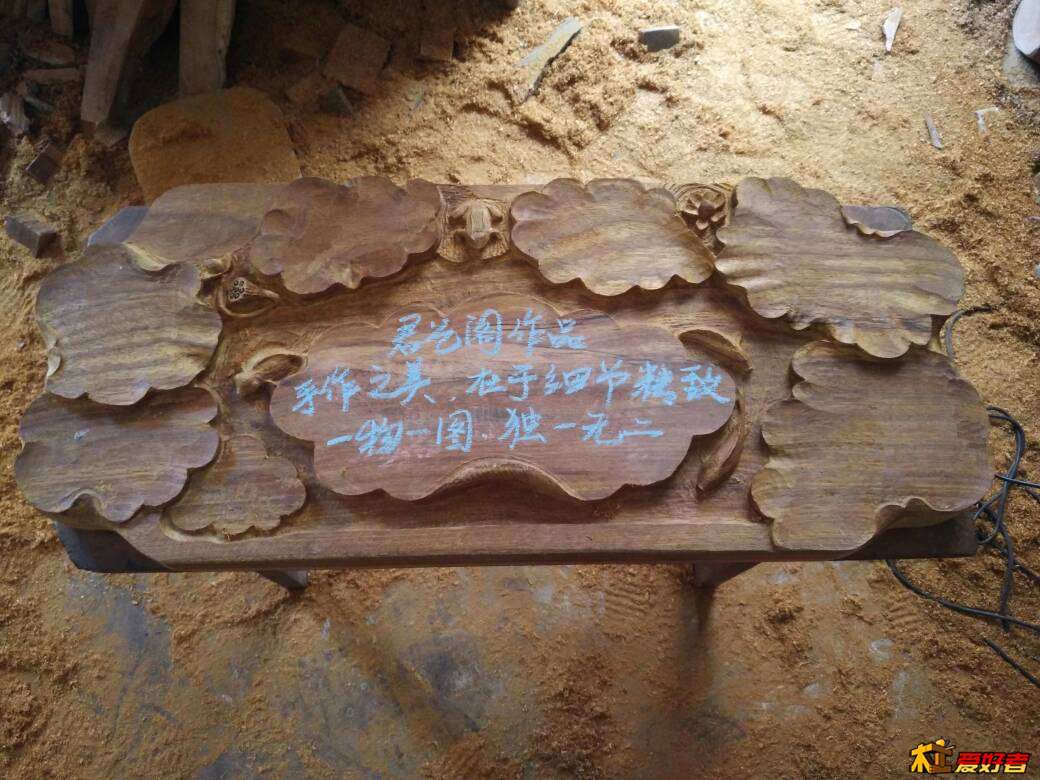 君艺阁作品
手作之美，在于细节精致
一物一图，独一无二
木工爱好者